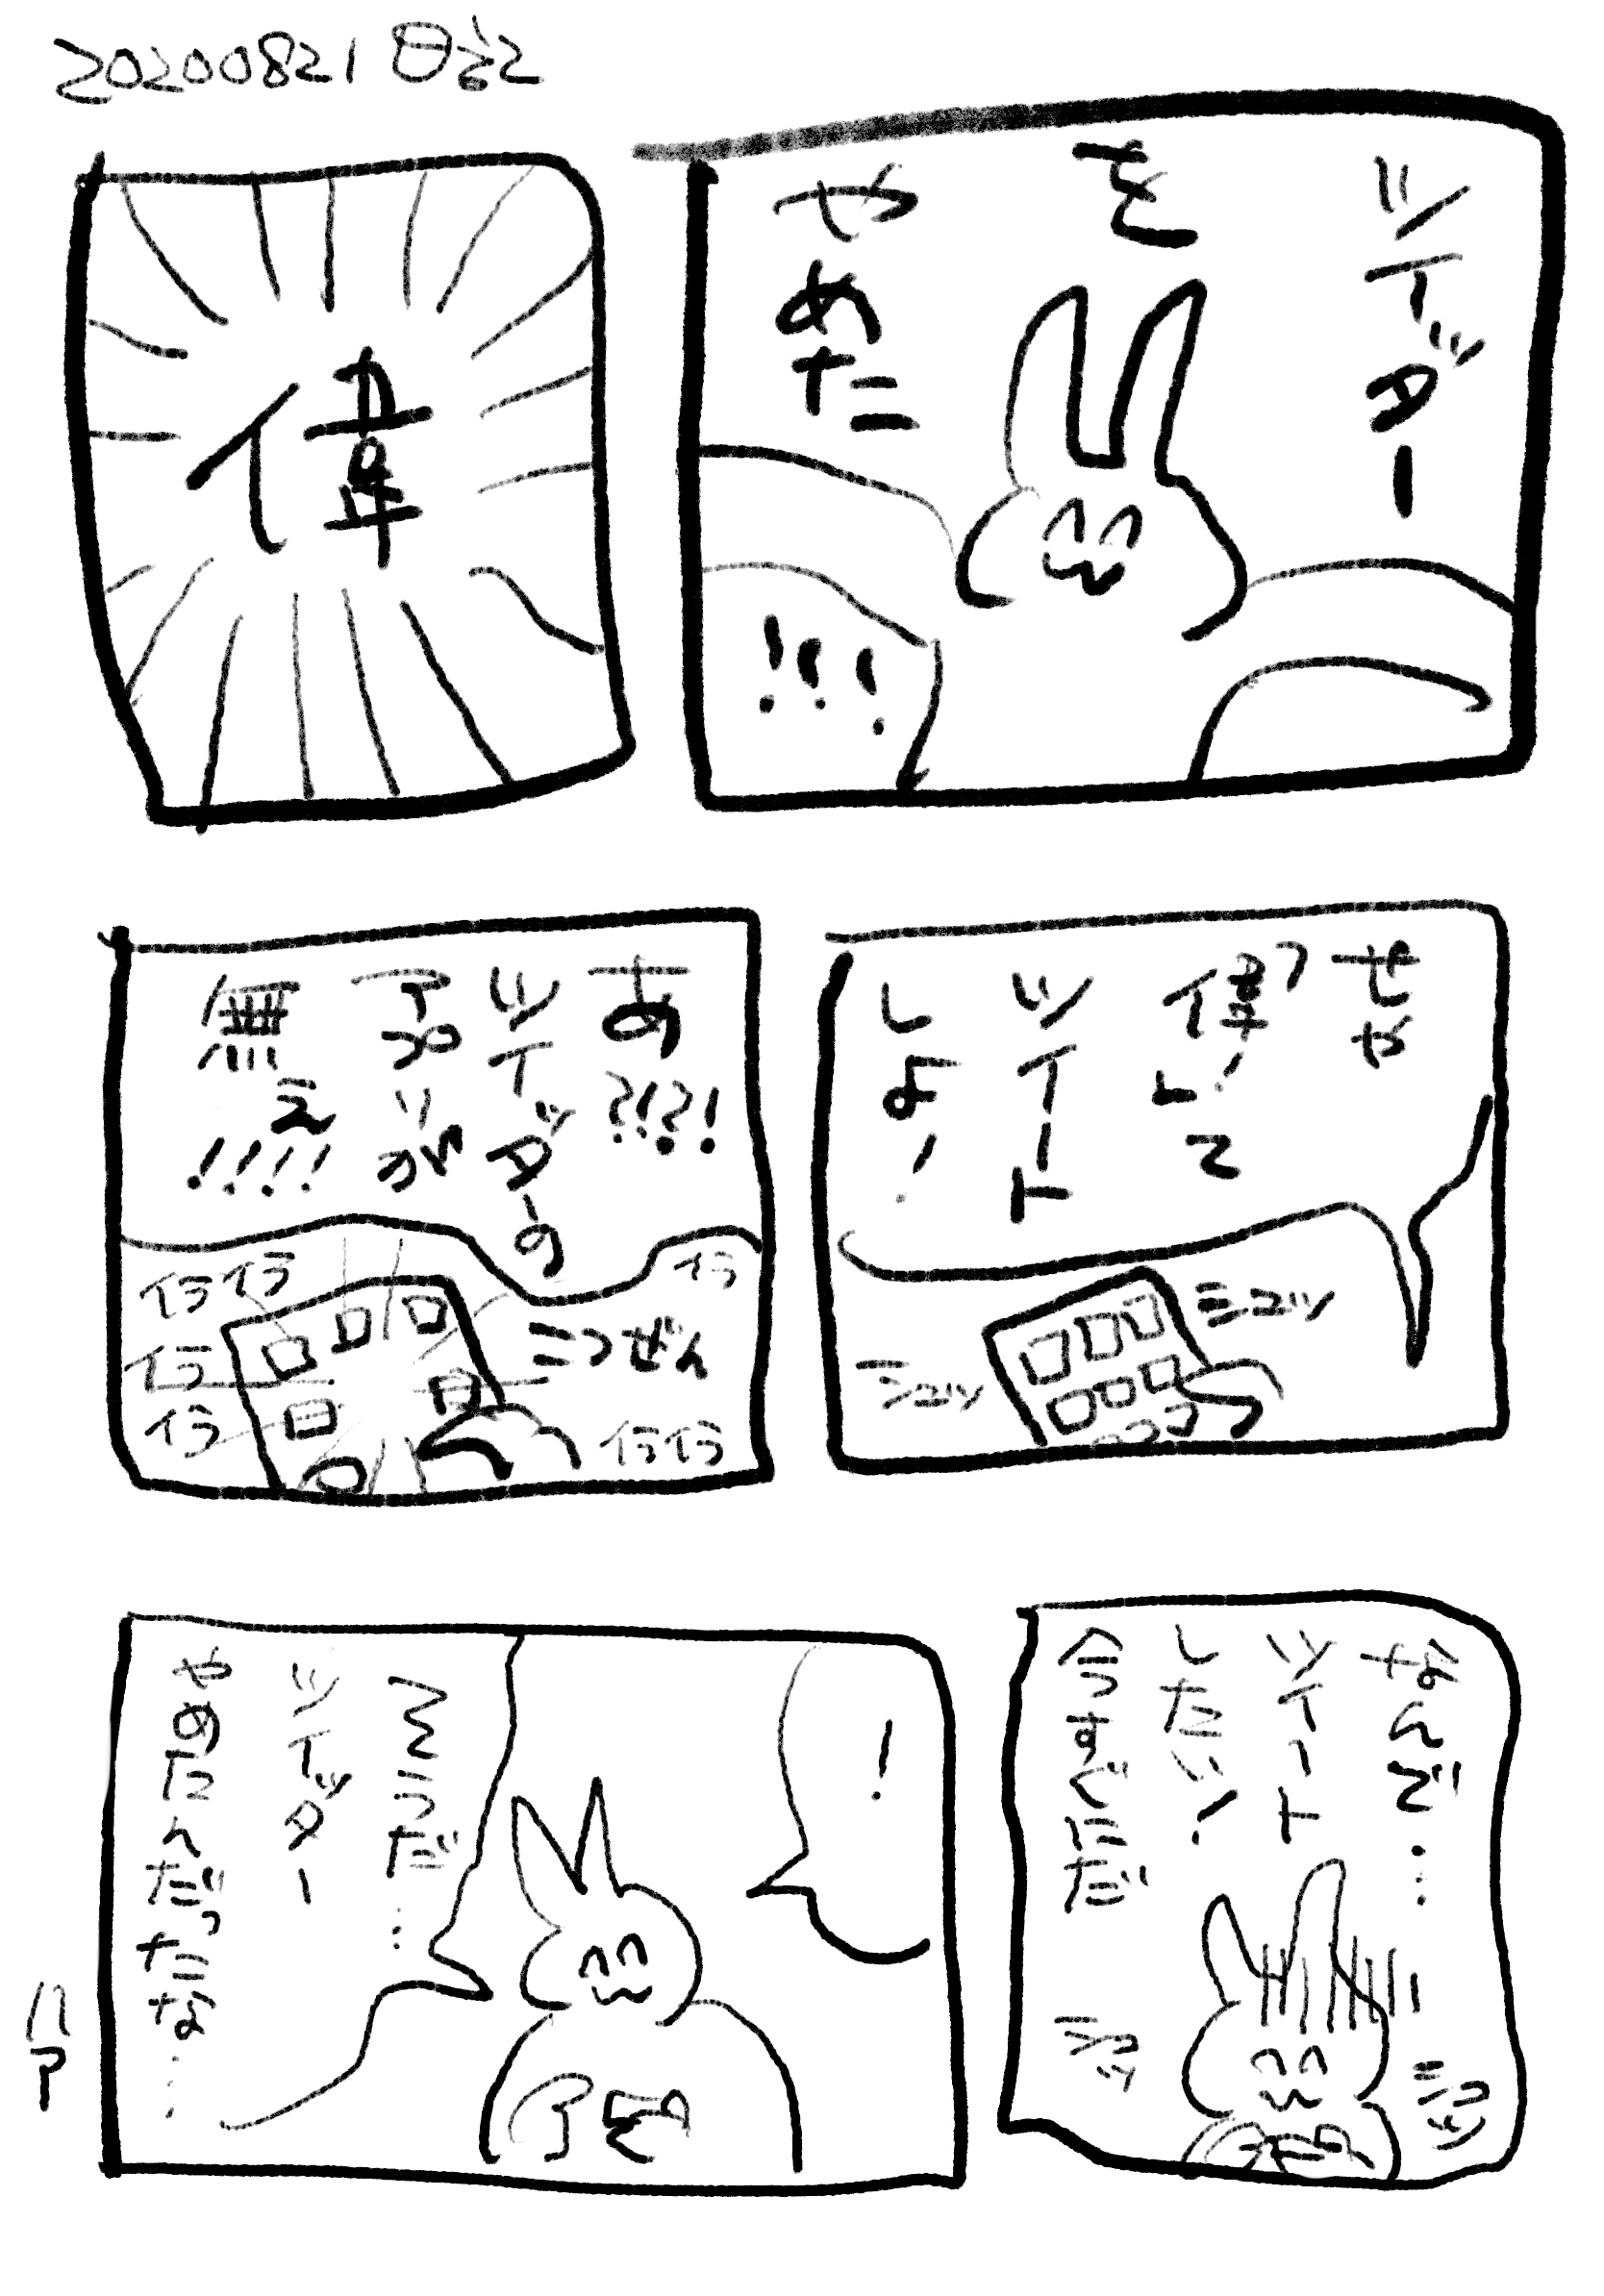 20200821 日記
ツイッター
を
やめた
!!!
偉
せや
偉くて
ツイート
しよ!
シュッ
シュッ
あ?!?!
ツイッターの
アプリが
無え
!!!!
イライラ
イラ
イラ
イラ
とつぜん
イライラ
なんで…
ツイート
したい!
今すぐにだ
シュッ
シュッ
!
そうだ…
ツイッター
やめたんだったな…